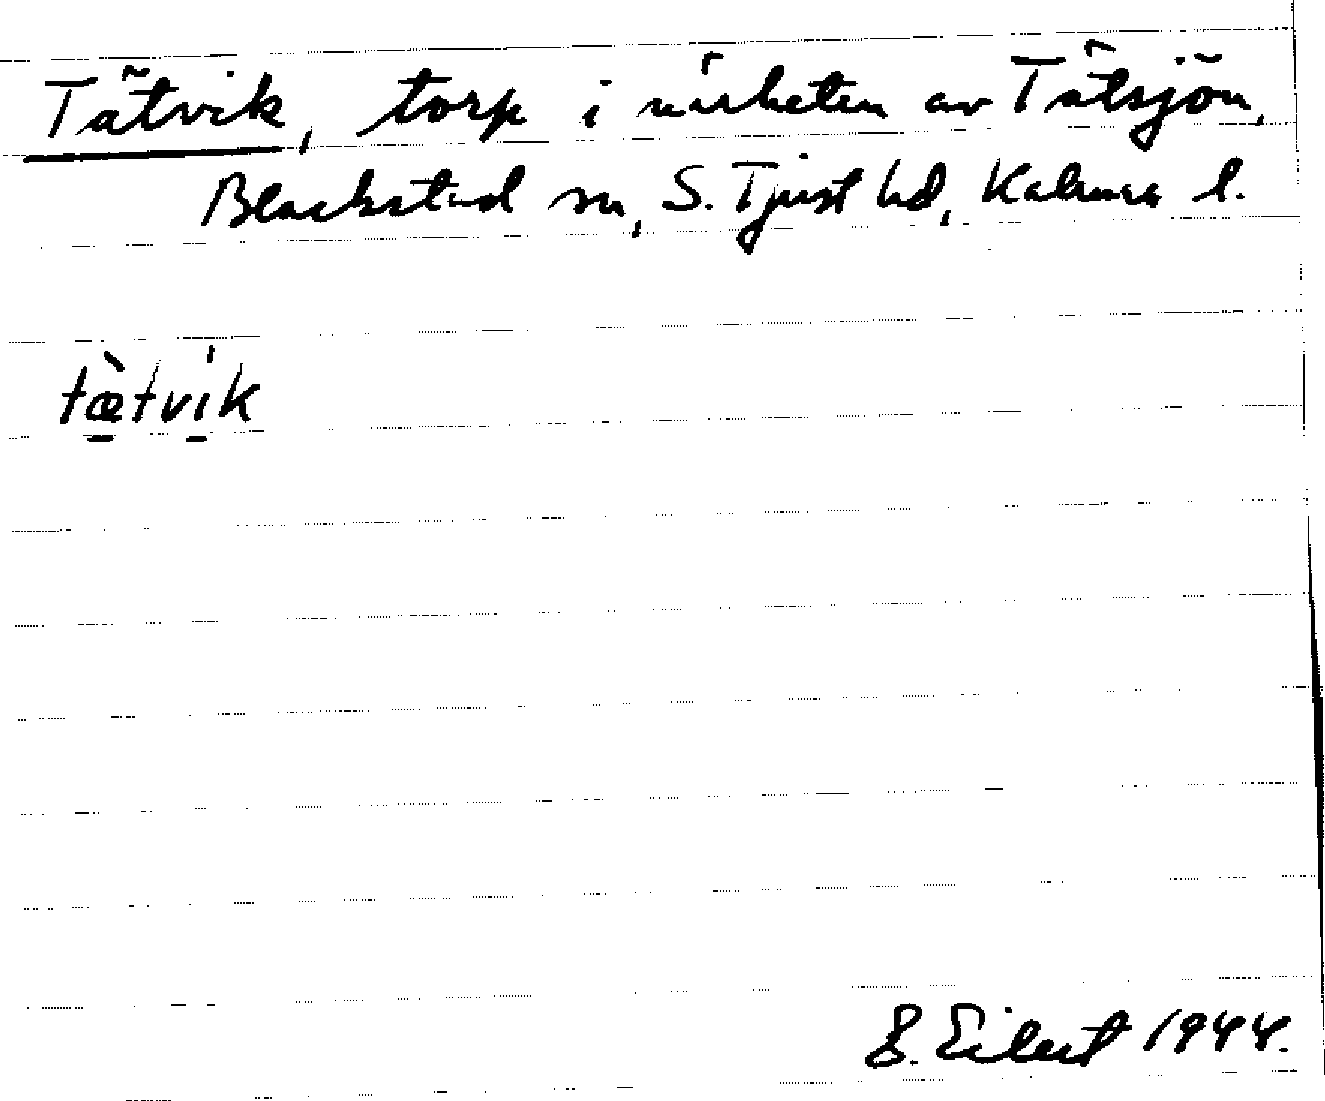 Tätvik, torp i närheten av Tätsjön,
Blackstad sn, S. Tjust hd, Kalmar l.
tæ̀tvík
Eilert 1944.